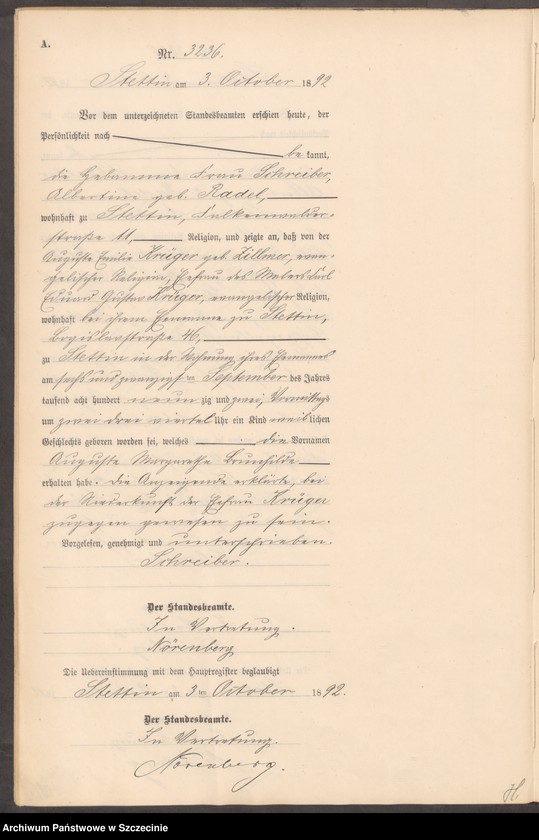 A.
Nr. 3236.
Stettin am 3. October 1892
Vor dem unterzeichneten Standesbeamten erschien heute, der
Persönlichkeit nach
bekannt,
die Hebamme Frau Schreiber,
Albertine geb. Radel,
wohnhaft zu Stettin, Falkenwalder-
straße 11, Religion, und zeigte an, daß von der
Auguste Emilie Krüger geb. Zillmer, evan-
gelischer Religion, Ehefrau des Malers Karl
Eduard Gustav Krüger, evangelischer Religion,
wohnhaft bei ihrem Ehemanne zu Stettin,
46,
zu Stettin in der Wohnung ihres Ehemannes
am sechs und zwanzigsten September des Jahres
tausend acht hundert neunzig und zwei, Vormittags
um zwei drei viertel Uhr ein Kind weiblichen
Geschlechts geboren worden sei, welches die Vornamen
Auguste Margarethe Brunhilde
erhalten habe. Die Anzeigende erklärte, bei
der Niederkunft der Ehefrau Krüger
zugegen gewesen zu sein.
Vorgelesen, genehmigt und unterschrieben.
Schreiber.
Der Standesbeamte.
In Vertretung.
Nörenberg
Die Uebereinstimmung mit dem Hauptregister beglaubigt
Stettin am 3ten October 1892.
Der Standesbeamte.
In Vertretung.
Nörenberg.
Archiwum Państwowe w Szczecinie